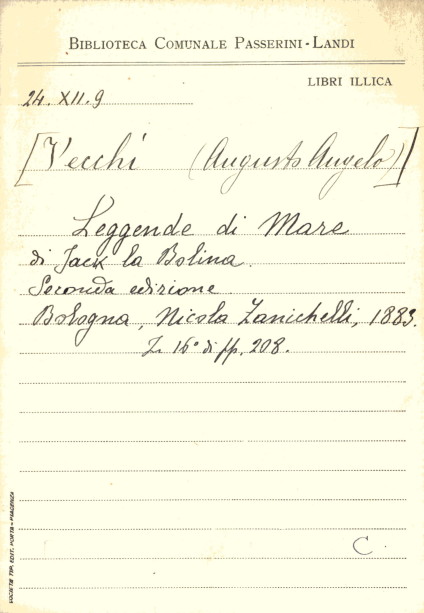 BIBLIOTECA COMUNALE PASSERINI-LANDI
LIBRI ILLICA
24. XII. 9
[Vecchi (Augusto Angelo)]
Leggende di Mare
di Jack la Bolina.
Seconda edizione
Bologna, Nicola Zanichelli, 1883.
In 16° di pp. 208.
C.
SOCIETÀ TIP. EDIT. PORTA - PIACENZA